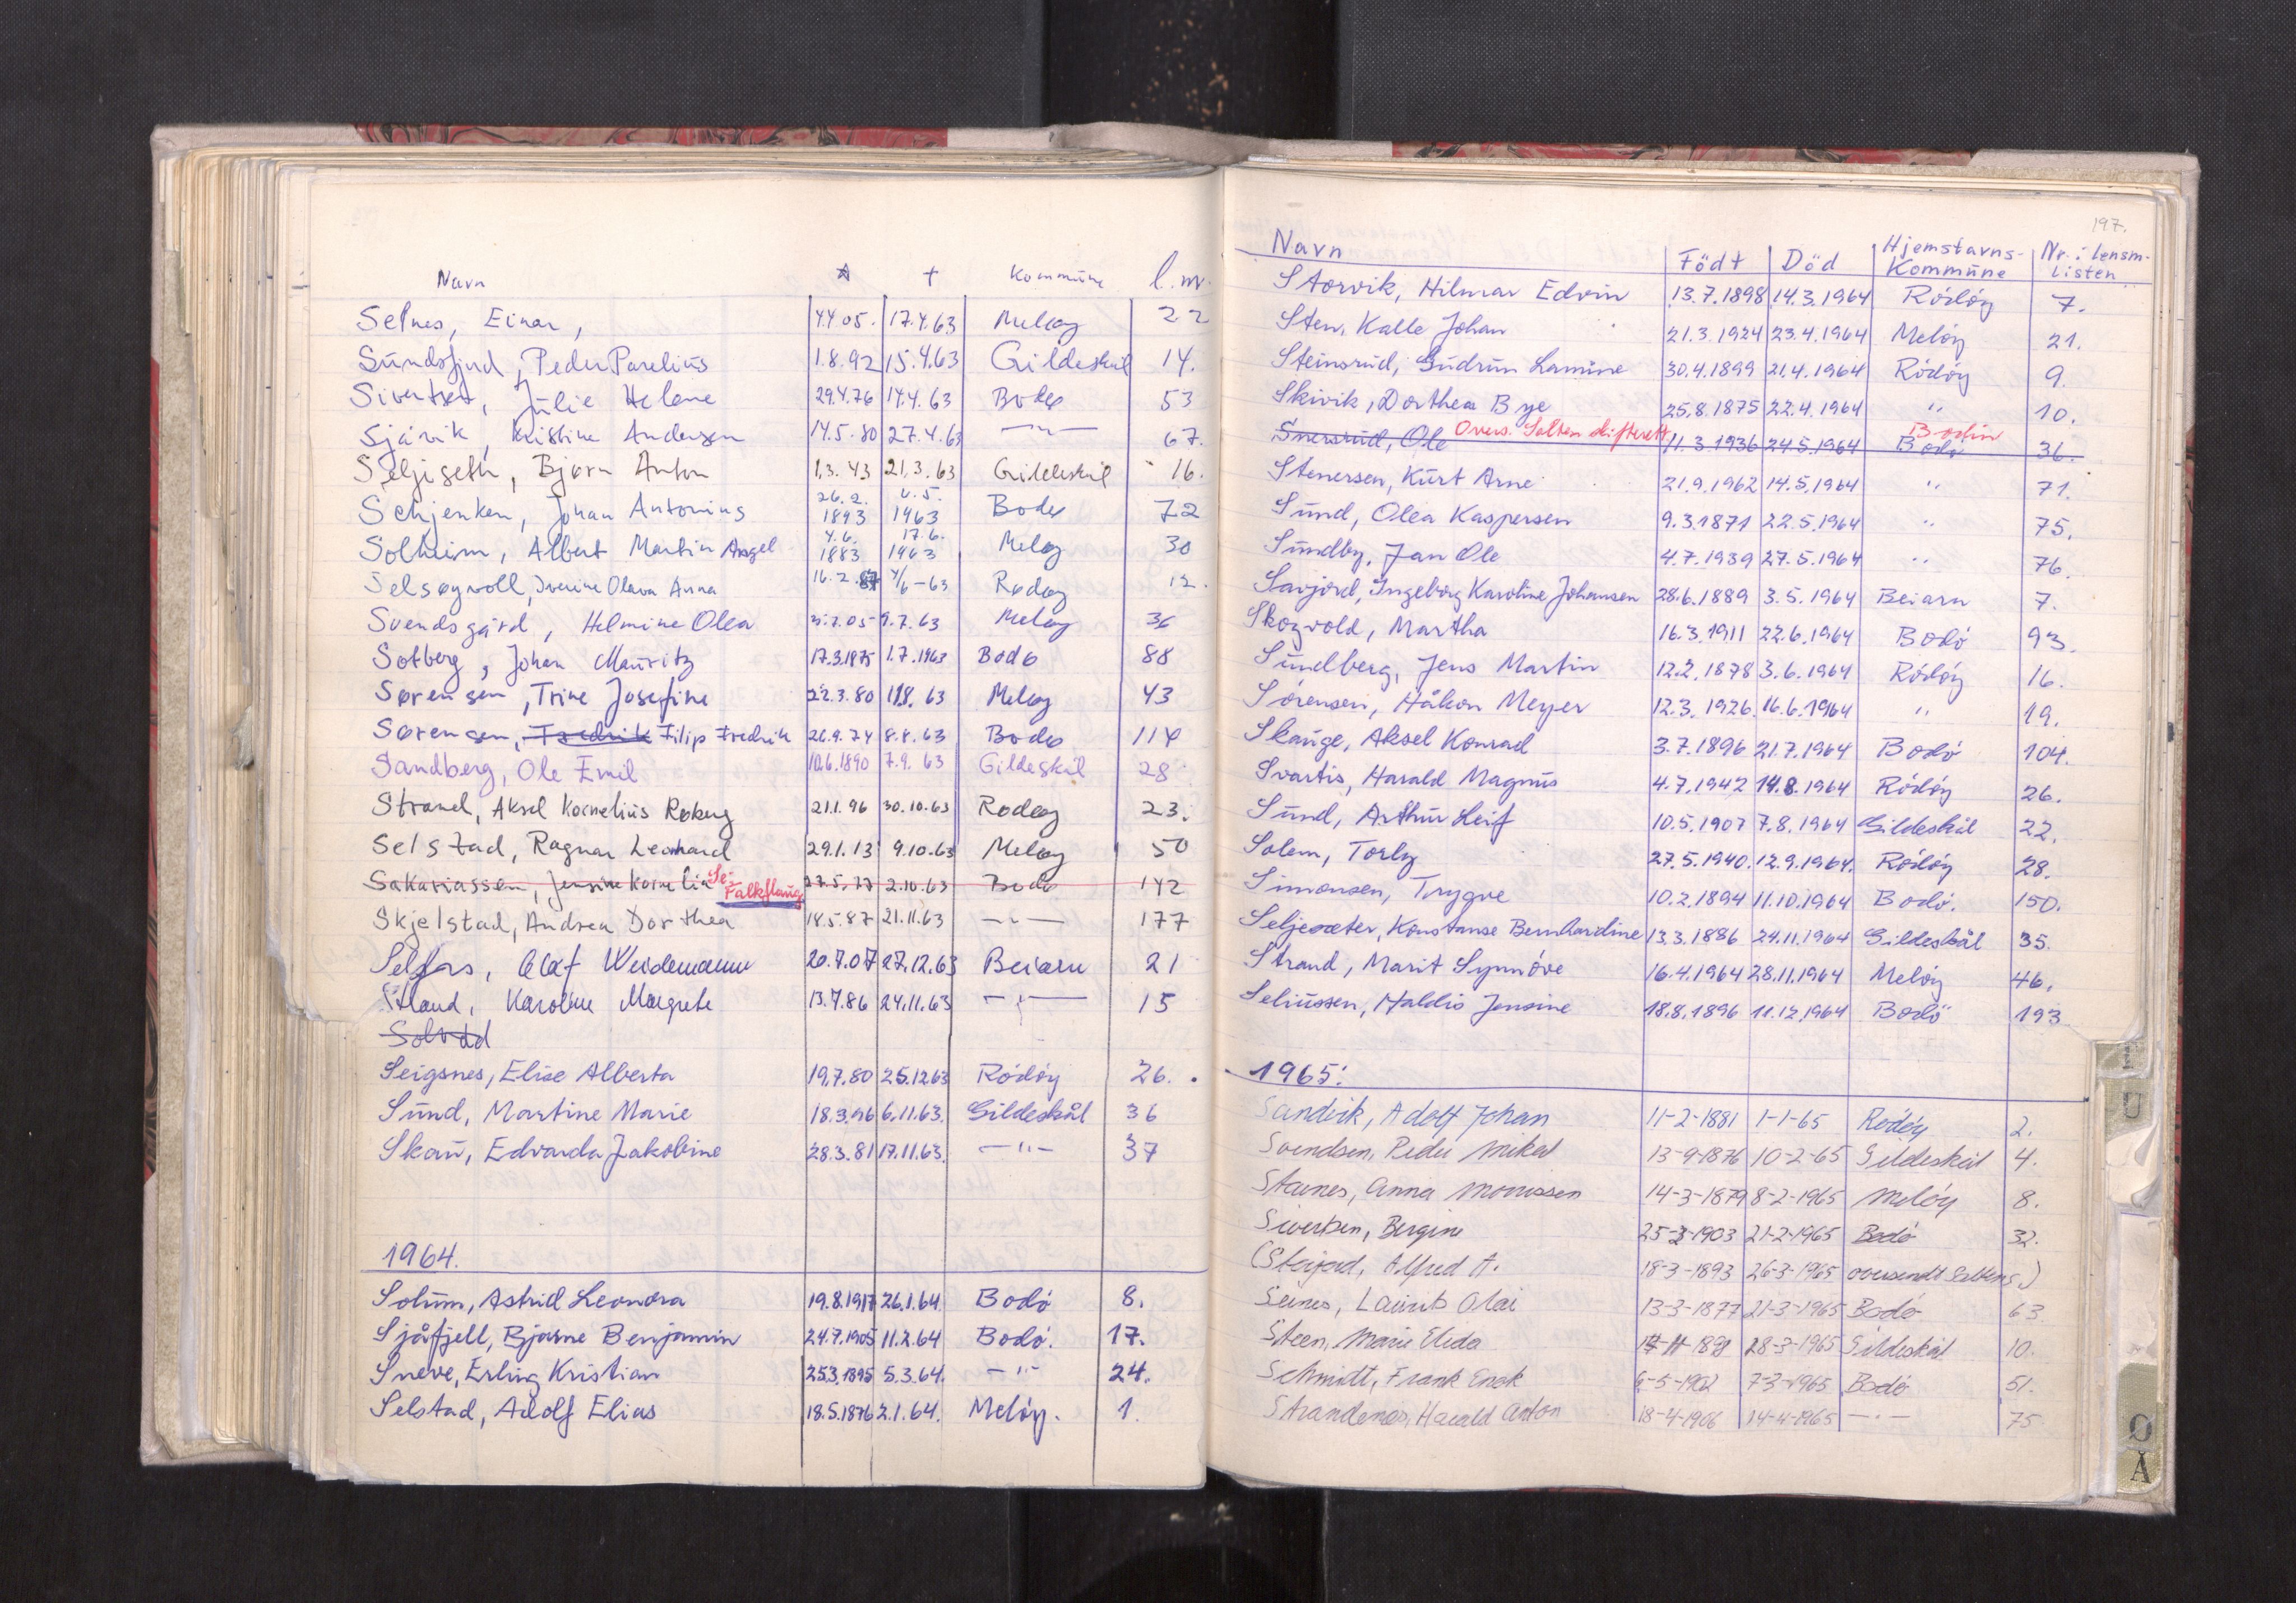 Navn ☆ † Kommune l.nr.
Selnes, Einar, 4.4.05. 17.4.63 Meløy 22
Sundsfjord, Peder Parelius 1.8.92 15.4.63 Gildeskål 14.
Sivertsen, Julie Helene 29.4.76 14.4.63 Bodø 53
Sjåvik, Kristine Andersen 14.5.80 27.4.63 —"— 67.
Seljeseth, Bjørn Anton 1.3.43 21.3.63 Gildeskål 16.
Schjenken, Johan Antonius 26.2. 1893 6.5. 1963 Bodø 72
Solheim, Albert Martin Angel 4.6. 1883 17.6. 1963 Meløy 30
Selsøyvoll, Iverine Olava Anna 16.2.87 4/6-63 Rødøy 12.
Svendsgård, Helmine Olea 9.7.63 Meløy 36
Solberg, Johan Mauritz 17.3.1875 1.7.1963 Bodø 88
Sørensen, Trine Josefine 22.3.80 11.8.63 Meløy 43
Sørensen, Fredrik Filip Fredrik 26.9.74 8.8.63 Bodø 114
Sandberg, Ole Emil 10.6.1890 7.9.63 Gildeskål 28
Strand, Aksel Kornelius Roberg 21.1.96 30.10.63 Rødøy 23.
Selstad, Ragnar Leonhard 29.1.13 9.10.63 Meløy 50
Sakariassen, Jensine Kornelia Se: Falkflaug 27.5.77 2.10.63 Bodø 142
Skjelstad, Andrea Dorthea 18.5.87 21.11.63 —"— 177
Selfors, Olaf Weidemann 20.7.07 27.12.63 Beiarn 21
Karoline Margrete 13.7.86 24.11.63 —"— 15
Seigsnes, Elise Alberta 19.7.80 25.12.63 Rödöy 26.
Sund, Martine Marie 18.3.96 6.11.63. Gildeskål 36
Skau, Edvarda Jakobine 28.3.81 17.11.63. —"— 37
1964.
Solum, Astrid Leonora 19.8.1917 26.1.64. Bodö 8.
Sjåfjell, Bjarne Benjamin 24.7.1905 11.2.64 Bodö. 17.
Sneve, Erling Kristian 25.3.1895 5.3.64. —"— 24.
Selstad, Adolf Elias 18.5.1876 2.1.64. Melöy. 1.
197.
Navn Födt Död Hjemstavns-Kommune Nr. i lensm-listen
Storvik, Hilmar Edvin 13.7.1898 14.3.1964 Rödöy 7.
Sten, Kalle Johan 21.3.1924 23.4.1964 Melöy 21.
Steinsrud, Gudrun Lamine 30.4.1899 21.4.1964 Rödöy 9.
Skivik, Dorthea Bye 25.8.1875 22.4.1964 " 10.
Snersrud, Ole Overs. Salten skifterett 11.3.1936 24.5.1964 Bodö Bodin 36.
Stenersen, Kurt Arne 21.9.1962 14.5.1964 " 71.
Sund, Olea Kaspersen 9.3.1871 22.5.1964 " 75.
Sundby, Jan Ole 4.7.1939 27.5.1964 " 76.
Savjord, Ingeborg Karoline Johansen 28.6.1889 3.5.1964 Beiarn 7.
Skogvold, Martha 16.3.1911 22.6.1964 Bodö 93.
Sundberg, Jens Martin 12.2.1878 3.6.1964 Rödöy 16.
Sörensen, Håkon Meyer 12.3.1926. 16.6.1964 " 19.
Skauge, Aksel Konrad 3.7.1896 21.7.1964 Bodö 104.
Svartis, Harald Magnus 4.7.1942 14.8.1964 Rödöy 26.
Sund, Arthur Leif 10.5.1907 7.8.1964 Gildeskål 22.
Solem, Torly 27.5.1940. 12.9.1964. Rödöy 28.
Simonsen, Trygve 10.2.1894 11.10.1964 Bodö. 150.
Seljesæter, Konstanse Bernhardine 13.3.1886 24.11.1964 Gildeskål 35.
Strand, Marit Synnöve 16.4.1964 28.11.1964 Melöy 46.
Seliussen, Haldis Jensine 18.8.1896 11.12.1964 Bodö 193
1965:
Sandvik, Adolf Johan 11-2-1881 1-1-65 Rödöy 2.
Svendsen, Peder Mikal 13-9-1876 10-2-65 Gildeskål 4.
Stavnes, Anna Monussen 14-3-1879 8-2-1965 Melöy 8.
Sivertsen, Bergine 25-3-1903 21-2-1965 Bodö 32.
(Steigard, Alfred A. 18-3-1893 26-3-1965 oversendt Saltens.)
Seines, Laurits Olai 13-3-1877 21-3-1965 Bodö 63.
Steen, Marie Elida 28-3-1965 Gildeskål 10.
Schmidt, Frank Enok 6-5-1902 7-3-1965 Bodö 51.
Strandenes, Harald Anton 18-4-1906 14-4-1965 —"— 75
U
Ø
Å